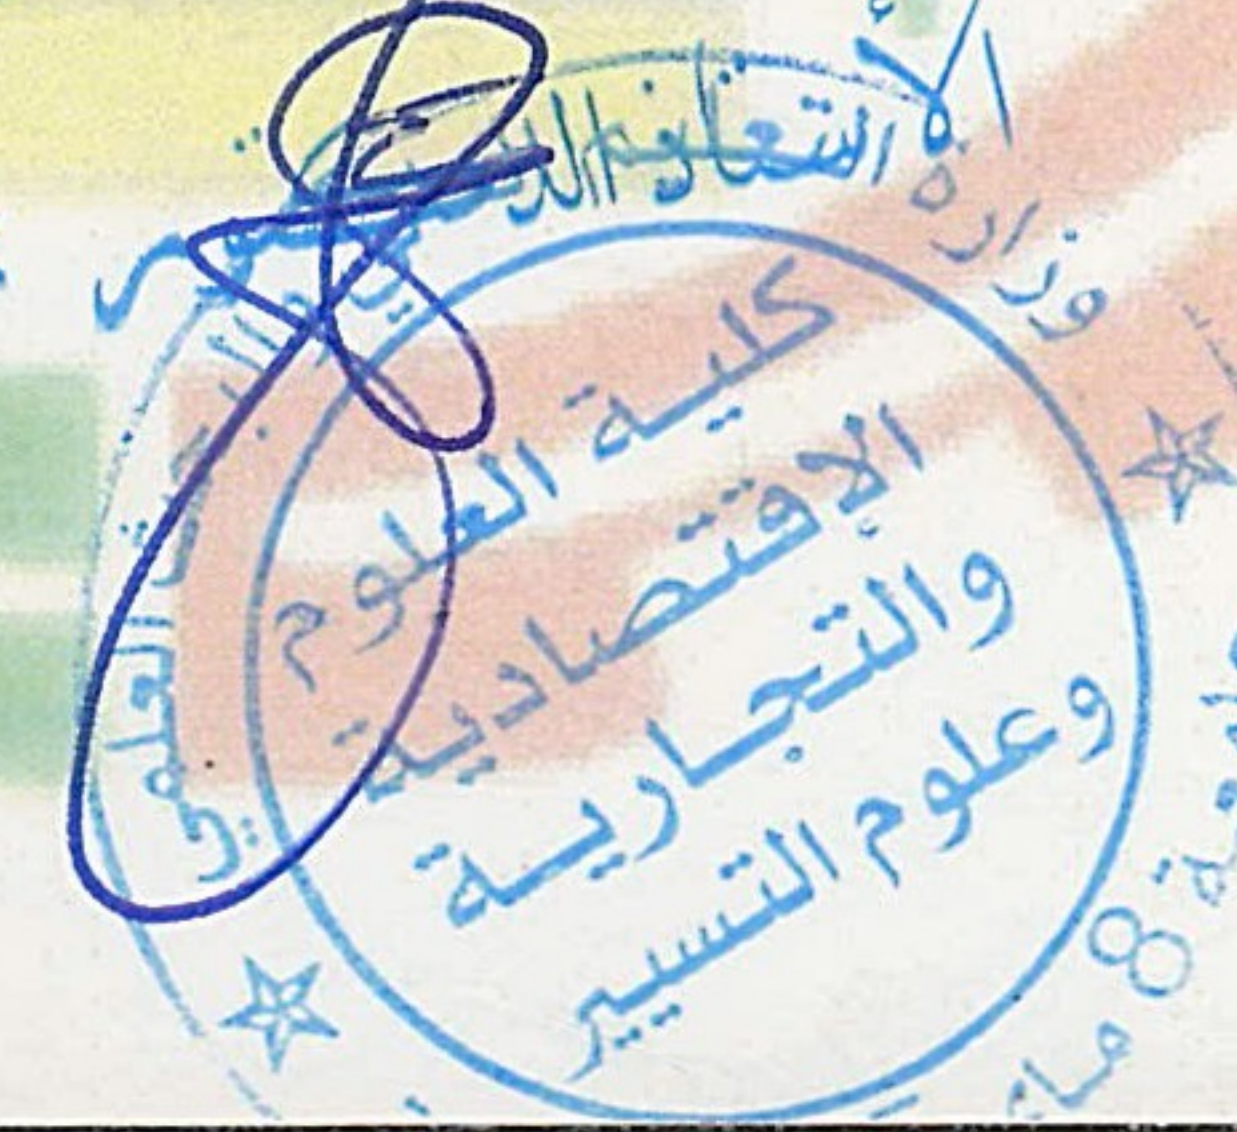 وزارة التعليم العالي والبحث العلمي
جامعة 8 ماي
كلية العلوم
الاقتصادية
والتجارية
وعلوم التسيير